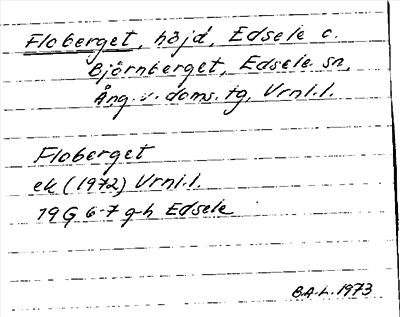 Floberget, höjd, Edsele c.
Björnberget, Edsele sn,
Ång. v. doms. tg, Vrnl.l.
Floberget
ek (1972) Vrnl.l.
19G 6-7 g-h Edsele
B.A.L. 1973